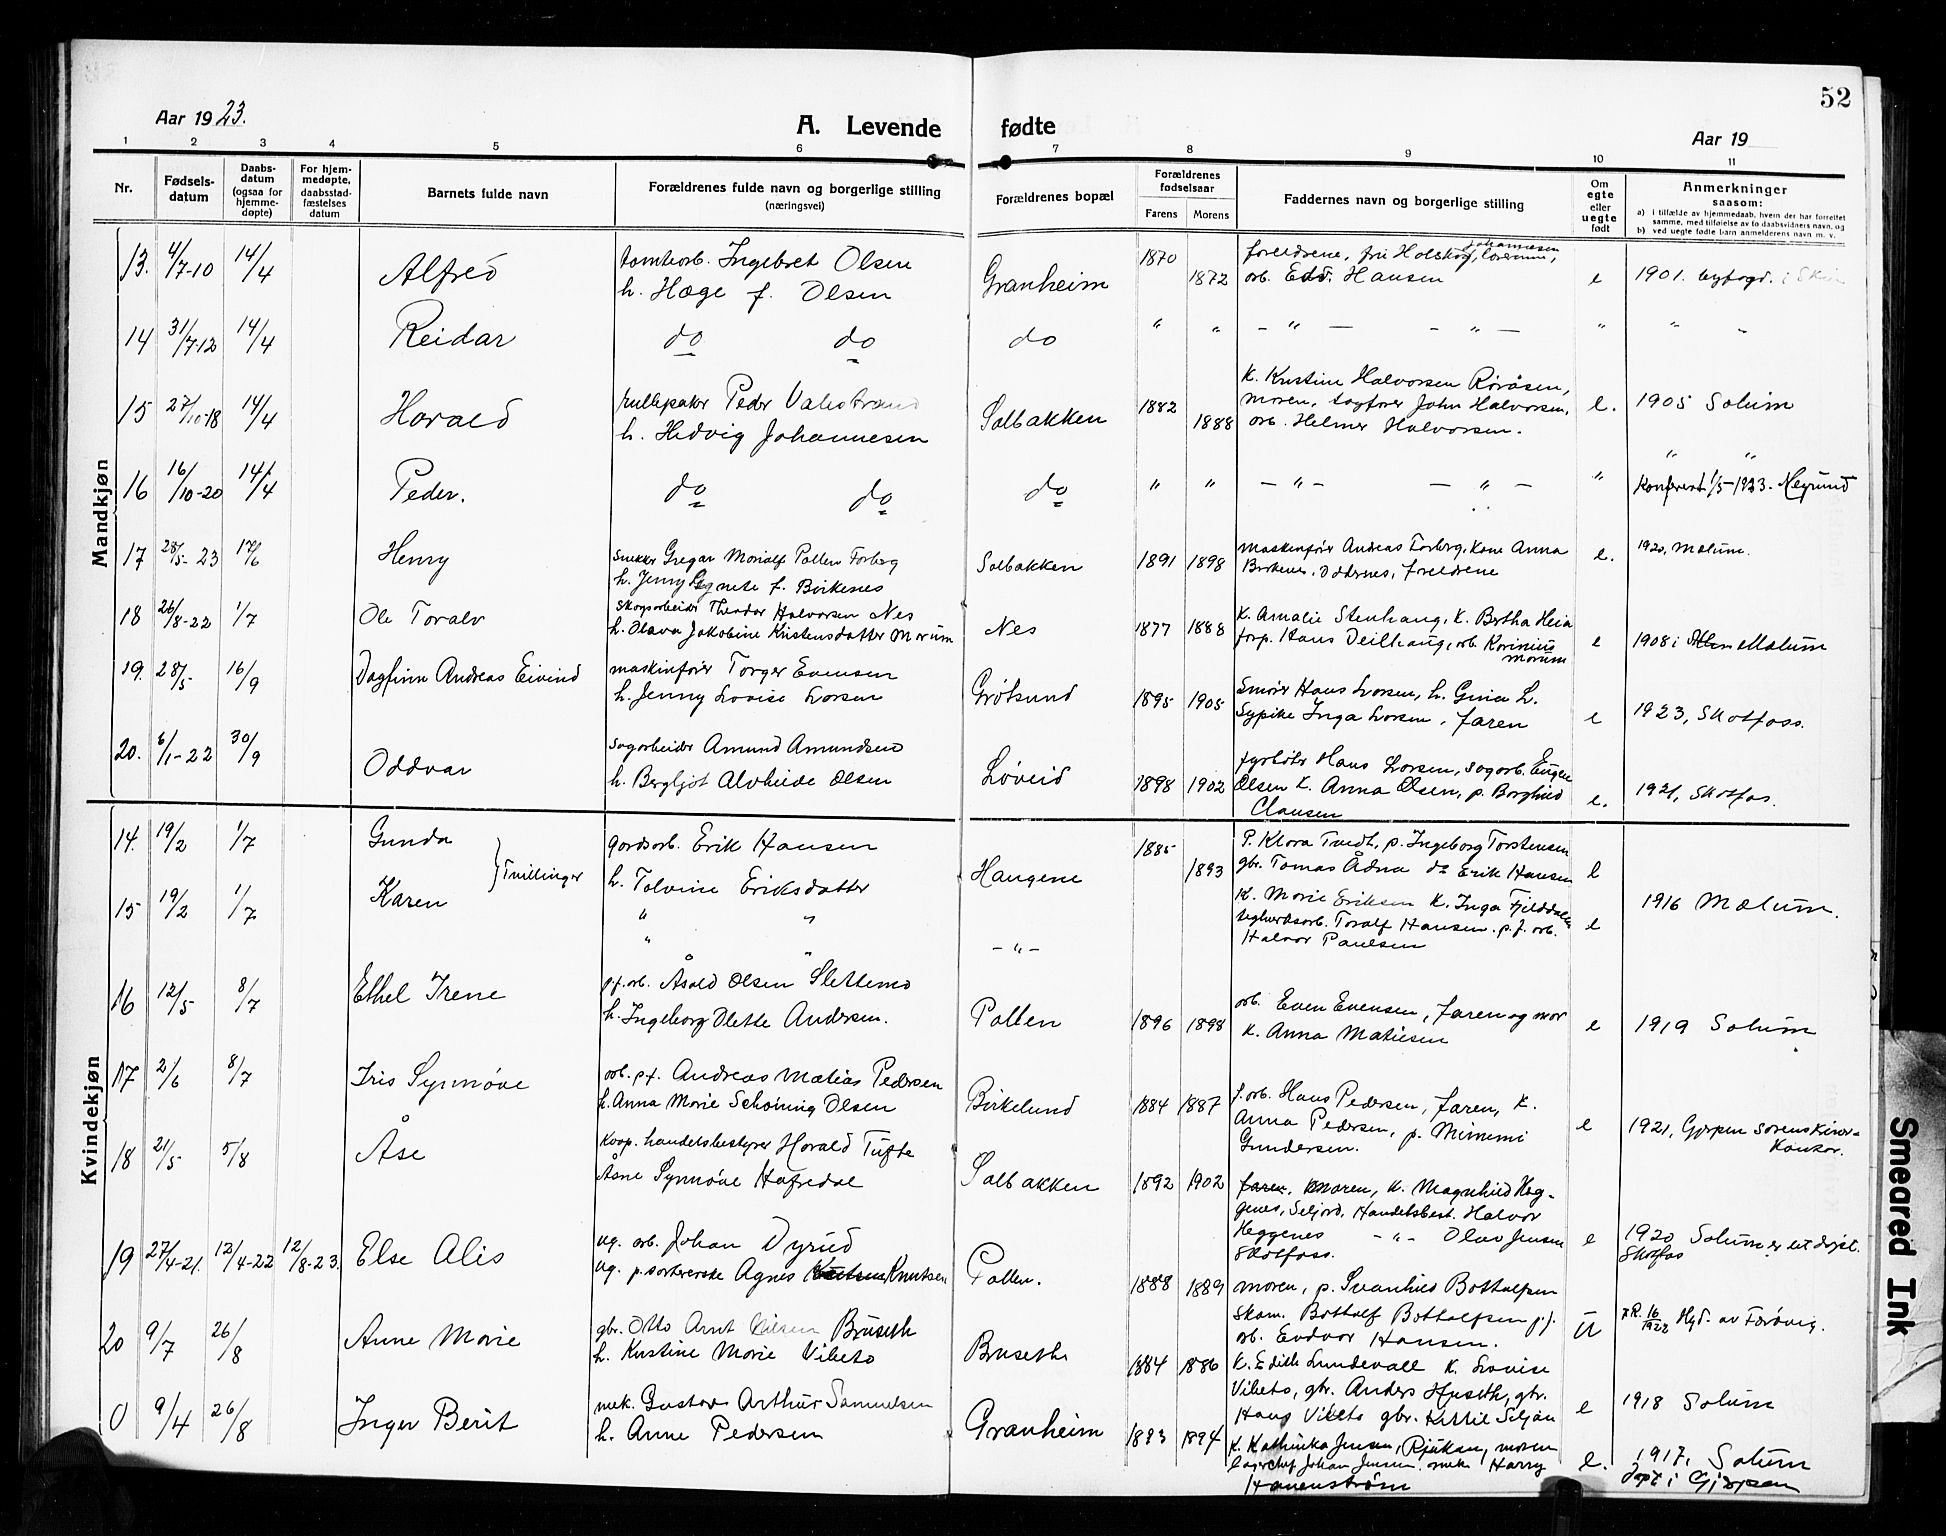 52
Aar 1923.
A. Levende fødte
Aar 19
1 2 3 4 5 6 7 8 9 10 11
Nr.
Fødsels-
datum
Daabs-
datum
(ogsaa for
hjemme-
døpte)
For hjem-
medøpte,
daabsstad-
fæstelses
datum
Barnets fulde navn
Forældrenes fulde navn og borgerlige stilling
(næringsvei)
Forældrenes bopæl
Forældrenes
fødselsaar
Farens Morens
Faddernes navn og borgerlige stilling
Om
egte
eller
uegte
født
Anmerkninger
saasom:
a) i tilfælde av hjemmedaab, hvem der har forrettet
samme, med tilføielse av to daabsvidners navn, og
b) ved uegte fødte barn anmelderens navn m. v.
Mandkjøn
13. 4/7-10 14/4 Alfred tomtearb. Ingebret Olsen
h. Hæge f. Olsen Granheim 1870 1872
foreldrene, frii Holskog, Johannesen
arb. Edv. Hansen e 1901. byfogd. i Skien
14 31/7-12 14/4 Reidar do do do " " - " - - " - " " "
15 27/10-18 14/4 Harald Peder Valestrand
h. Hedvig Johannesen Solbakken 1882 1888
k. Kristine Halvorsen Røråsen,
moren, togfører John Halvorsen,
arb. Helmer Halvorsen. e. 1905 Solum
16 16/10-20 14/4 Peder. do do do " " - " - - " - " " "
Konferert 1/5-1923-Negrund
17 28/5-23 17/6 Henry snekker Gregar Monialf Pollen Forberg
h. Jenny Agnete f. Birkenes Solbakken 1891 1898
maskinfører Andreas Forberg, Kone Anna
Birkenes, Oddernes, foreldrene e. 1920, Mælum.
18 26/8-22 1/7 Ole Toralv skogsarbeider Theodor Halvorsen Nes
h. Olava Jakobine Kristensdatter Morum Nes 1877 1888
k. Amalie Stenhaug, k. Bertha Heia
forp. Hans Deilhaug, arb. Karinius
Morum e 1908 i Mælum
19. 28/5 16/9 Dagfinn Andreas Eivind maskinfører Torger Evensen
h. Jenny Lovise Larsen Grøtsund 1895 1905
Smører Hans Larsen, h. Gina L.
Sypike Inga Larsen, faren e 1923, Skotfoss.
20. 6/1-22 30/9 Oddvar sagarbeider Amund Amundsen
h. Bergljot Alvhilde Olsen Løveid 1898 1902
fyrbøter Hans Larsen, sagarb. Eugen
Olsen k. Anna Olsen, p. Borghild
Clausen e. 1921, Skotfos.
Kvindekjøn
14. 19/2 1/7 Gunda } Tvillinger gardsarb. Erik Hansen
h. Tolvine Eriksdatter Haugene 1885 1893
P. Klara Tvedt, p. Ingeborg Torstensen
gbr. Tomas Ådna do Erik Hansen e
15 19/2 1/7 Karen " " " " - " -
k. Marie Eriksen k. Inga Fjelddalen
teglverksarb. Toralf Hansen. p.f. arb.
Halvor Paulsen e 1916 Mælum.
16 12/5 8/7 Ethel Irene p.f. arb. Åsold Olsen Slettemo
h. Ingeborg Olette Andersen. Pollen 1896 1898
arb. Even Evensen, faren og mor
k. Anna Matiesen e 1919 Solum
17 2/6 8/7 Iris Synnøve arb. p.f. Andreas Matias Pedersen
h. Anna Marie Schøning Olsen Birkelund 1884 1887
f. arb. Hans Pedersen, faren, k.
Anna Pedersen, p. Mimmi
Gundersen. e 1921, Gjerpen sorenskriver-
kontor.
18 21/5 5/8 Åse Koop. handelsbestyrer Harald Tufte
Åsne Synnøve Hafredal Solbakken 1892 1902
faren, moren, k. Magnhild Heg-
genes, Seljord, Handelsbest. Halvor
Heggenes - " - Olav Jensen
Skotfoss. e 1920 Solum er ut døpt.
Skotfos
19 27/4-21. 12/4-22 12/8-23. Else Alis ug. arb. Johan Dyrud
ug. p. sorterske Agnes Knutsen Pollen. 1888 1889
moren, p. Svanhild Bottolfsen
skom. Bottolf Bottolfsen p.f.
arb. Endvar Hansen. U † R. 16/1922 Hgd. av Færøvig.
20 9/7 26/8 Anne Marie gbr. Otto Arnt Nilsen Bruseth
h. Kristine Marie Vibeto Bruseth 1884 1886
k. Edith Lundevall k. Lovise
Vibeto, gbr. Anders Huseth, gbr.
Hans Vibeto gbr. Kittil Seljan e 1918 Solum
0 9/4 26/8 Inger Berit mek. Gustav Arthur Samuelsen
h. Anne Pedersen Granheim 1893 1894
k. Kathinka Jensen, Rjukan, moren
lagerchef Johan Jensen. mek. Harry
Hanenstrøm e. 1917, Solum
døpt i Gjerpen
Smeared Ink